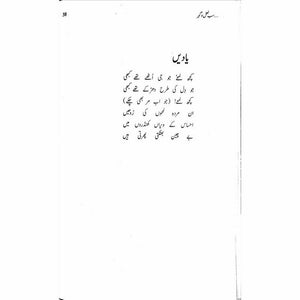 58
یادیں
کچھ لمحے جو جی اُٹھے تھے کبھی
جو دل کی طرح دھڑکے تھے کبھی
کچھ لمحے! (جو اب مر بھی چکے)
ان مردہ لمحوں کی روحیں
احساس کے ویراں کھنڈروں میں
بے چین بھٹکتی پھرتی ہیں